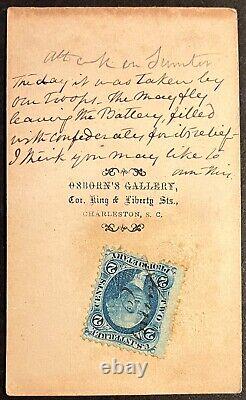 Attack on Sumter
The day it was taken by
our troops. The May fly
leaving the Battery, filled
with confederates, for its relief –
I think you may like to
own this.
OSBORN'S GALLERY,
Cor. King & Liberty Sts.,
CHARLESTON, S. C.
2 CENTS TWO 2
U.S. INTER. REV.
ebay